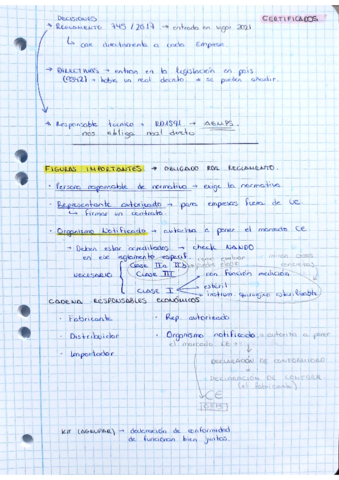 DECISIONES
CERTIFICADOS
REGLAMENTO 745/2017 → entrada en vigor 2021
↳ van directamente a cada empresa
→ DIRECTIVAS → entran en la legislación en país
→ había un real decreto * se pueden añadir.
* Responsable técnico → RD1591 → AEMPS
nos obliga real decreto
FIGURAS IMPORTANTES → OBLIGADO POR REGLAMENTO.
· Persona responsable de normativa → exige la normativa.
· Representante autorizado → para empresas fuera de CE
↳ firmar un contrato.
· Organismo Notificado → autoriza a poner el marcado CE
→ Deben estar acreditados → check NANDO
en ese reglamento específ.
NECESARIO
CLASE IIa IIb
CLASE III
CLASE I
→ con función medición
→ estéril
→ instrum. quirúrgico reutilizable
CADENA RESPONSABLES ECONÓMICOS
· Fabricante
· Rep. autorizado
· Distribuidor
· Organismo notificado → autoriza a poner
el marcado CE
· Importador
DECLARACIÓN DE CONFORMIDAD
(el fabricante)
CE
KIT (AGRUPAR) → declaración de conformidad
de funcionan bien juntos.